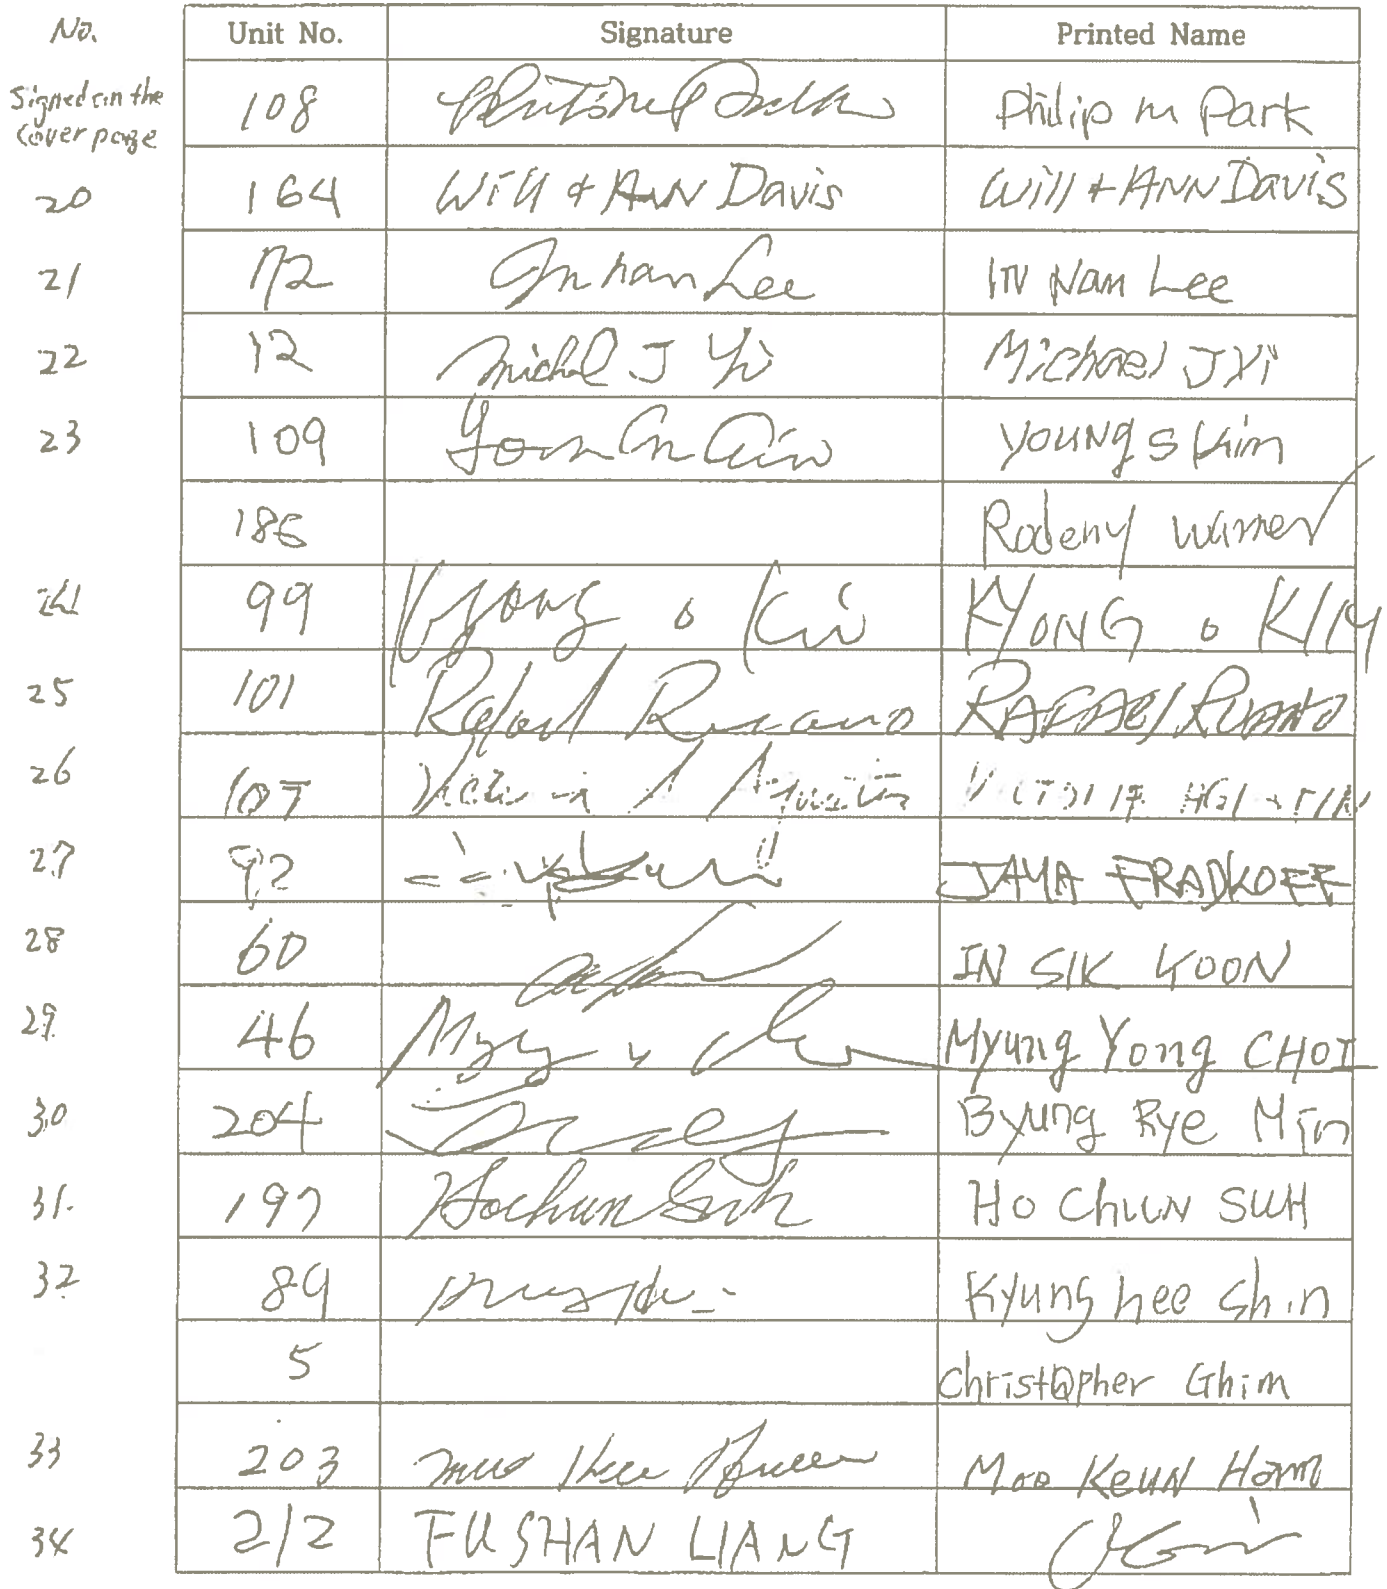 No. Unit No. Signature Printed Name
Signed on the
cover page 108 Philip M Park
20 164 Will & ANN Davis Will & ANN Davis
21 172 In nan Lee IN Nam Lee
22 12 Michal J Yi Michael J Yi
23 109 YOUNG S Kim
186 Rodeny Warner
24 99 Kyong o Kim KYONG o KIM
25 101 Rafael Ruano RAFAEL RUANO
26 107
27 92 JAMA FRADKOFF
28 60 IN SIK YOON
29 46 Myung Yong CHOI
30 204 Byung Rye Min
31. 197 Hochun Suh HO Chun SUH
32 89 Kyung hee Shin
5 Christopher Ghim
33 203 Moo Keun Ham
34 212 FU SHAN LIANG